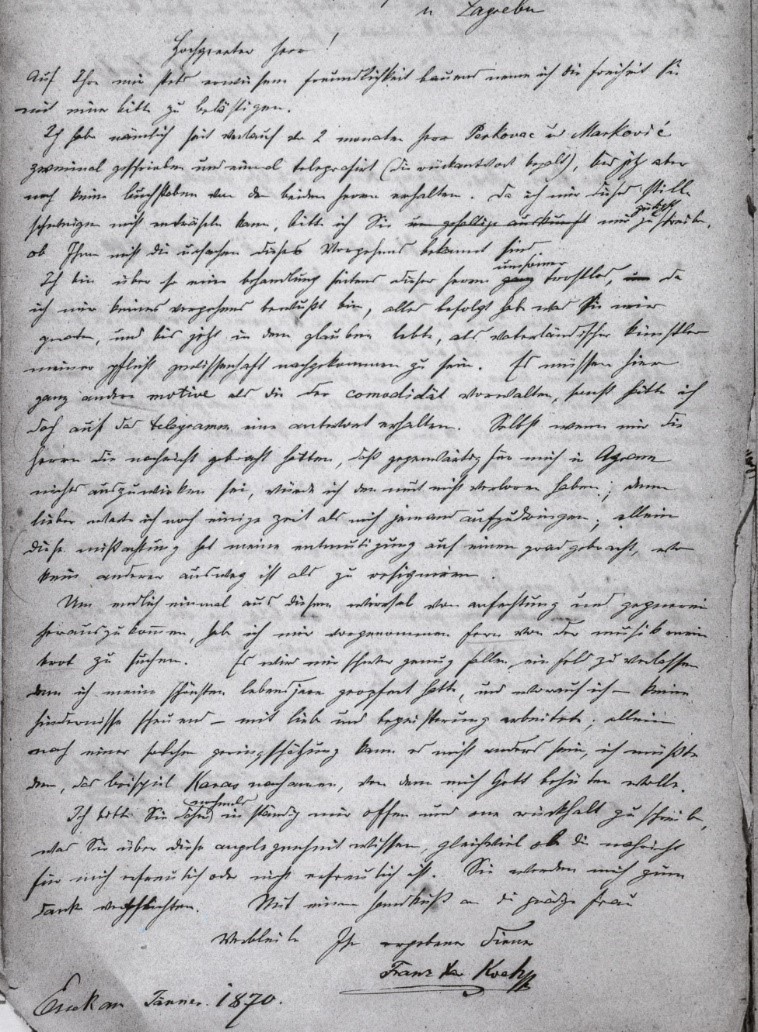 u Zagrebu
Hochgeerter Herr!
Auf Ihre mir stets erwiesene freundlichkeit bauend neme ich die freiheit Sie
mit einer bitte zu belästigen.
Ich habe nämlich seit verlauf von 2 monaten Herr Perkovac u. Marković
zweimal geschrieben und einmal telegrafirt (die rückantwort bezalt), bis jetzt aber
noch keinen buchstaben von den beiden herren erhalten. Da ich mir dieses still-
schweigen nicht enträtseln kann, bitte ich Sie um gefällige auskunft mir gütigst zu schreiben,
ob Ihnen nicht die ursachen dieses Vorgehens bekannt sind.
Ich bin über so eine behandlung seitens dieser herren umsomer ganz trostlos, da
ich mir keines vergehens bewußt bin, alles befolgt habe was Sie mir
geraten, und bis jetzt in dem glauben lebte, als vaterländischer künstler
meiner pflicht gewissenhaft nachgekommen zu sein. Es müssen hier
ganz andere motive als die der comodität vorwalten, sonst hätte ich
doch auf das telegramm eine antwort erhalten. Selbst wenn mir die
herren die nachricht gebracht hätten, daß gegenwärtig für mich in Agram
nichts auszuwirken sei, würde ich den mut nicht verloren haben; denn
lieber warte ich noch einige zeit als mich jemand aufzudringen; allein
diese mißachtung hat meine entmutigung auf einen grad gebracht, wo
kein anderer ausweg ist als zu resigniren.
Um endlich einmal aus diesem wirrsal von anfechtung und gegnerei
herauszukommen, habe ich mir vorgenommen fern von der musik mein
brot zu suchen. Es wird mir schwer genug fallen, ein feld zu verlassen
dem ich meine schönsten lebensjare geopfert hatte, und worauf ich – keine
hindernisse scheuend – mit liebe und begeisterung arbeitete; allein
nach einer solchen geringschätzung kann es nicht anders sein, ich müßte
denn, das beispiel Karas nachamen, von dem mich Gott behüten wolle.
Ich bitte Sie daher nochmals inständig mir offen und one rückhalt zu schreiben,
was Sie über diese angelegenheit wissen, gleichviel ob die nachricht
für mich erfreulich oder nicht erfreulich ist. Sie werden mich zum
Dank verpflichten. Mit einem handkuß an di gnädige Frau
Verbleibe Ihr ergebener Diener
Franz Xav Koch
Essek am Jänner. 1870.